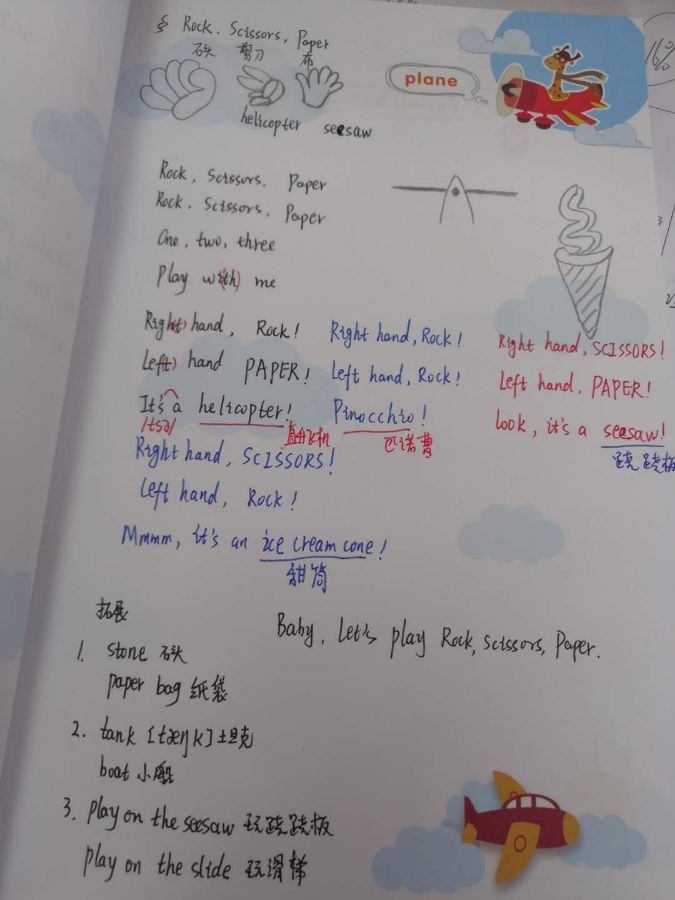 § Rock. Scissors, Paper
石头 剪刀 布
plane
helicopter seesaw
Rock, Scissors. Paper
Rock, Scissors, Paper
One, two, three
Play with me
Right hand, Rock!
Left hand PAPER!
It's a helicopter!
/tsə/ 直升飞机
Right hand, Rock!
Left hand, Rock!
Pinocchio!
匹诺曹
Right hand, SCISSORS!
Left hand. PAPER!
look, it's a seesaw!
跷跷板
Right hand, SCISSORS!
Left hand, Rock!
Mmmm, it's an ice cream cone!
甜筒
Baby, Let's play Rock, Scissors, Paper.
拓展
1. stone 石头
paper bag 纸袋
2. tank [tæŋk] 坦克
boat 小船
3. play on the seesaw 玩跷跷板
play on the slide 玩滑梯